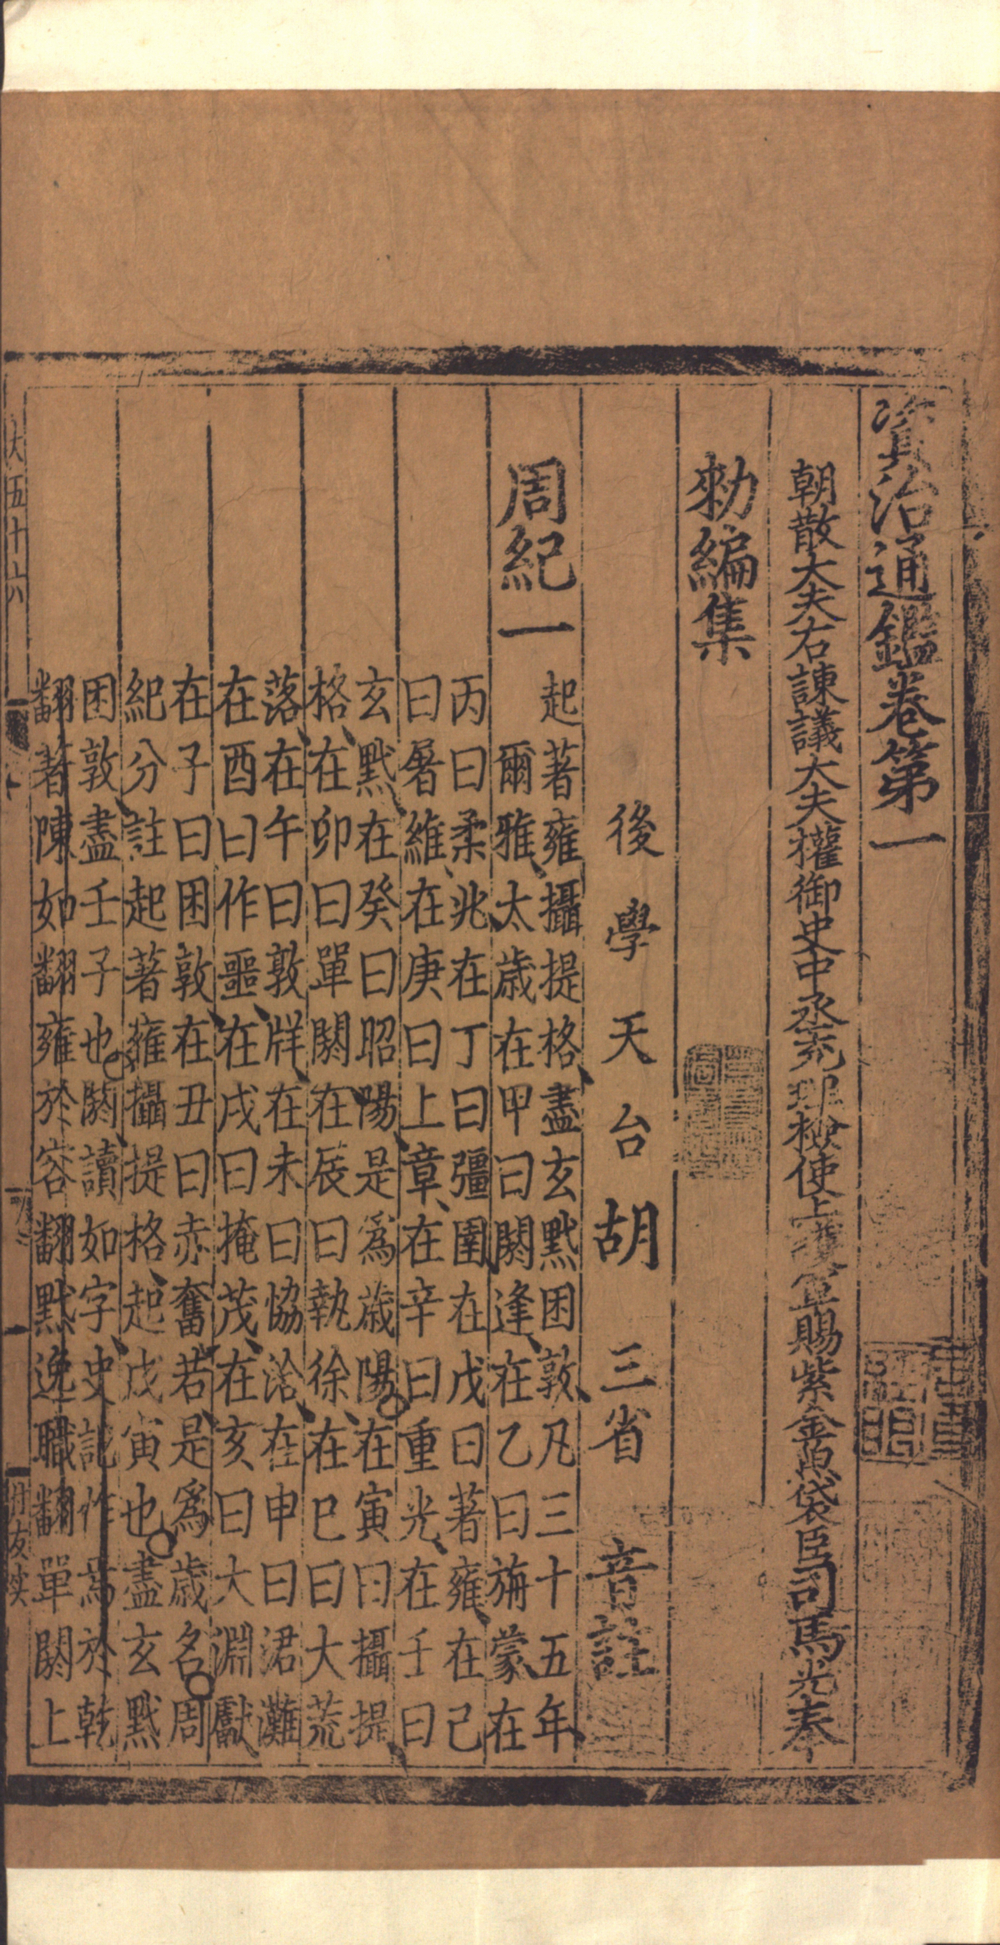 資治通鑑卷第一
朝散大夫右諫議大夫權御史中丞充理檢使上護軍賜紫金魚袋臣司馬光奉
勑編集
後學天台胡三省音註
周紀一
起著雍攝提格盡玄黓困敦凡三十五年
爾雅太歲在甲曰閼逢在乙曰旃蒙在
丙曰柔兆在丁曰彊圉在戊曰著雍在己
曰屠維在庚曰上章在辛曰重光在壬曰
玄黓在癸曰昭陽是爲歲陽在寅曰攝提
格在卯曰單閼在辰曰執徐在巳曰大荒
落在午曰敦牂在未曰協洽在申曰涒灘
在酉曰作噩在戌曰掩茂在亥曰大淵獻
在子曰困敦在丑曰赤奮若是爲歲名周
紀分註起著雍攝提格起戊寅也盡玄黓
困敦盡壬子也閼讀如字史記作焉於乾
翻著陳如翻雍於容翻黓逸職翻單閼上
大五十六